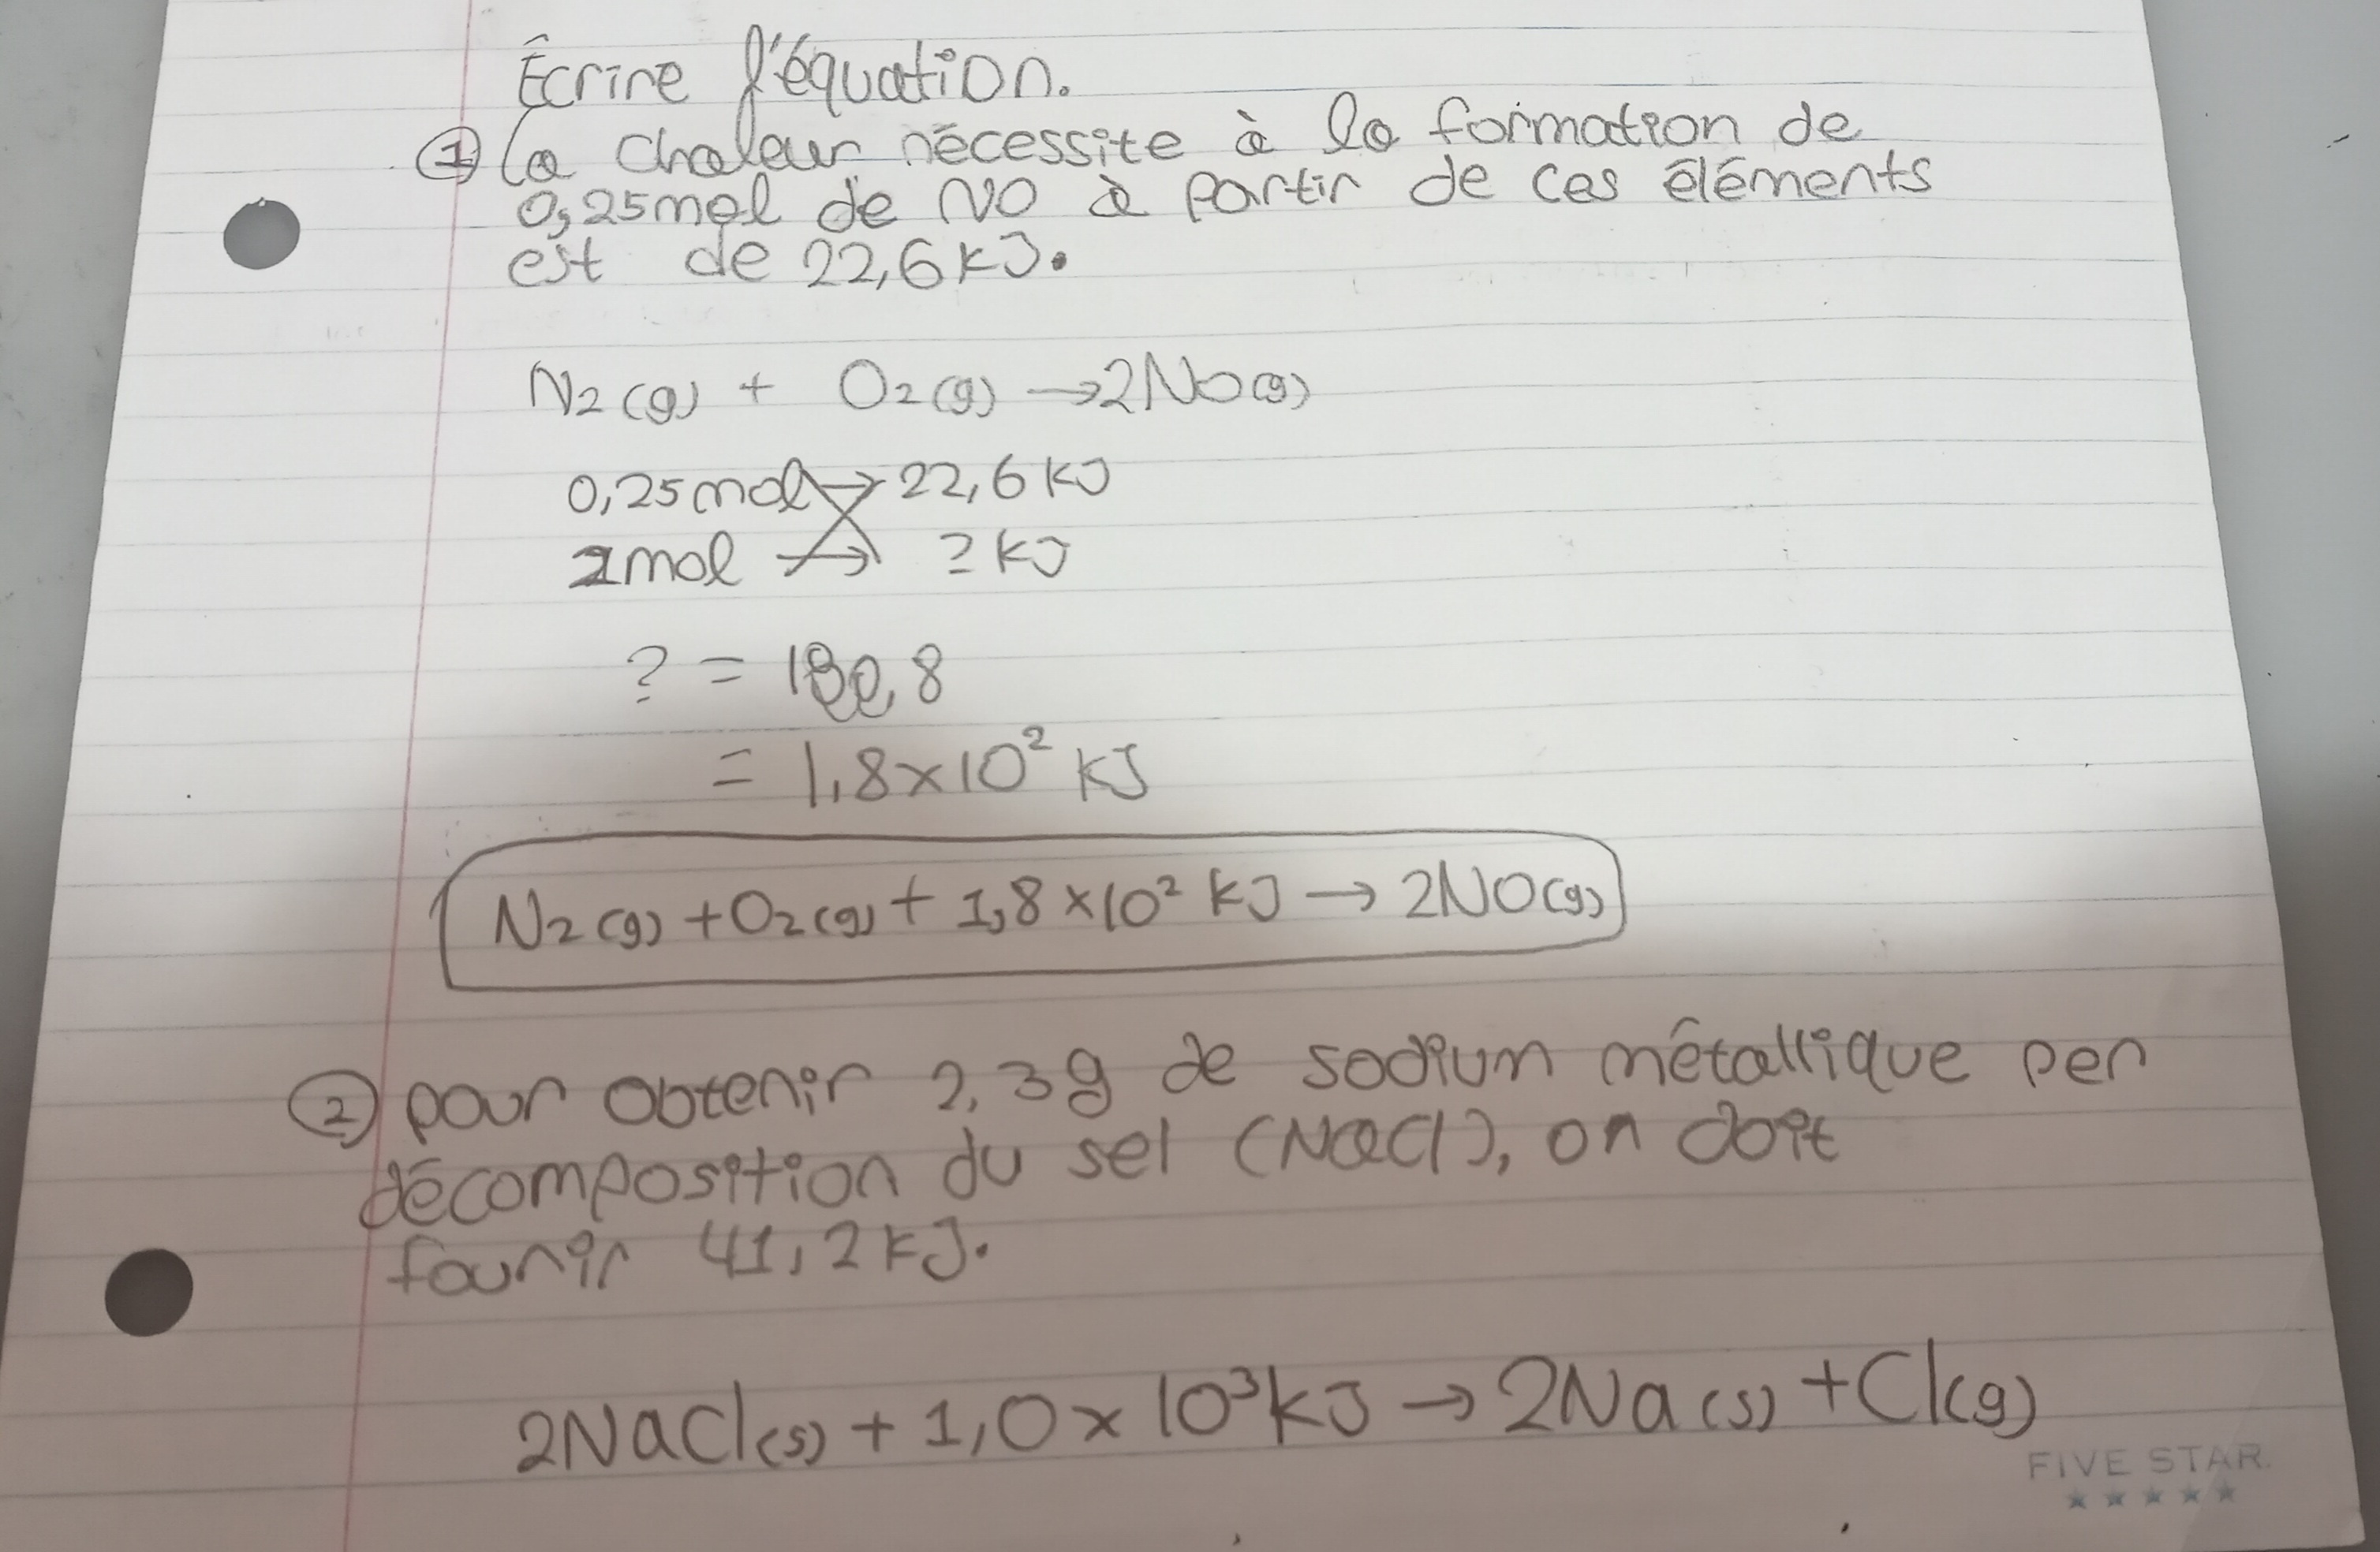 Écrire l'équation.
① la chaleur nécessite à la formation de
0,25mol de NO à partir de ces éléments
est de 22,6 kJ.
N2 (g) + O2 (g) → 2NO (g)
0,25mol → 22,6 kJ
2mol → ? kJ
? = 180,8
= 1,8×10² kJ
N2 (g) + O2 (g) + 1,8 ×10² kJ → 2NO (g)
② pour obtenir 2,3g de sodium métallique per
décomposition du sel (NaCl), on doit
founir 41,2 kJ.
2NaCl (s) + 1,0 × 10³ kJ → 2Na (s) + Cl (g)
FIVE STAR.
★★★★★